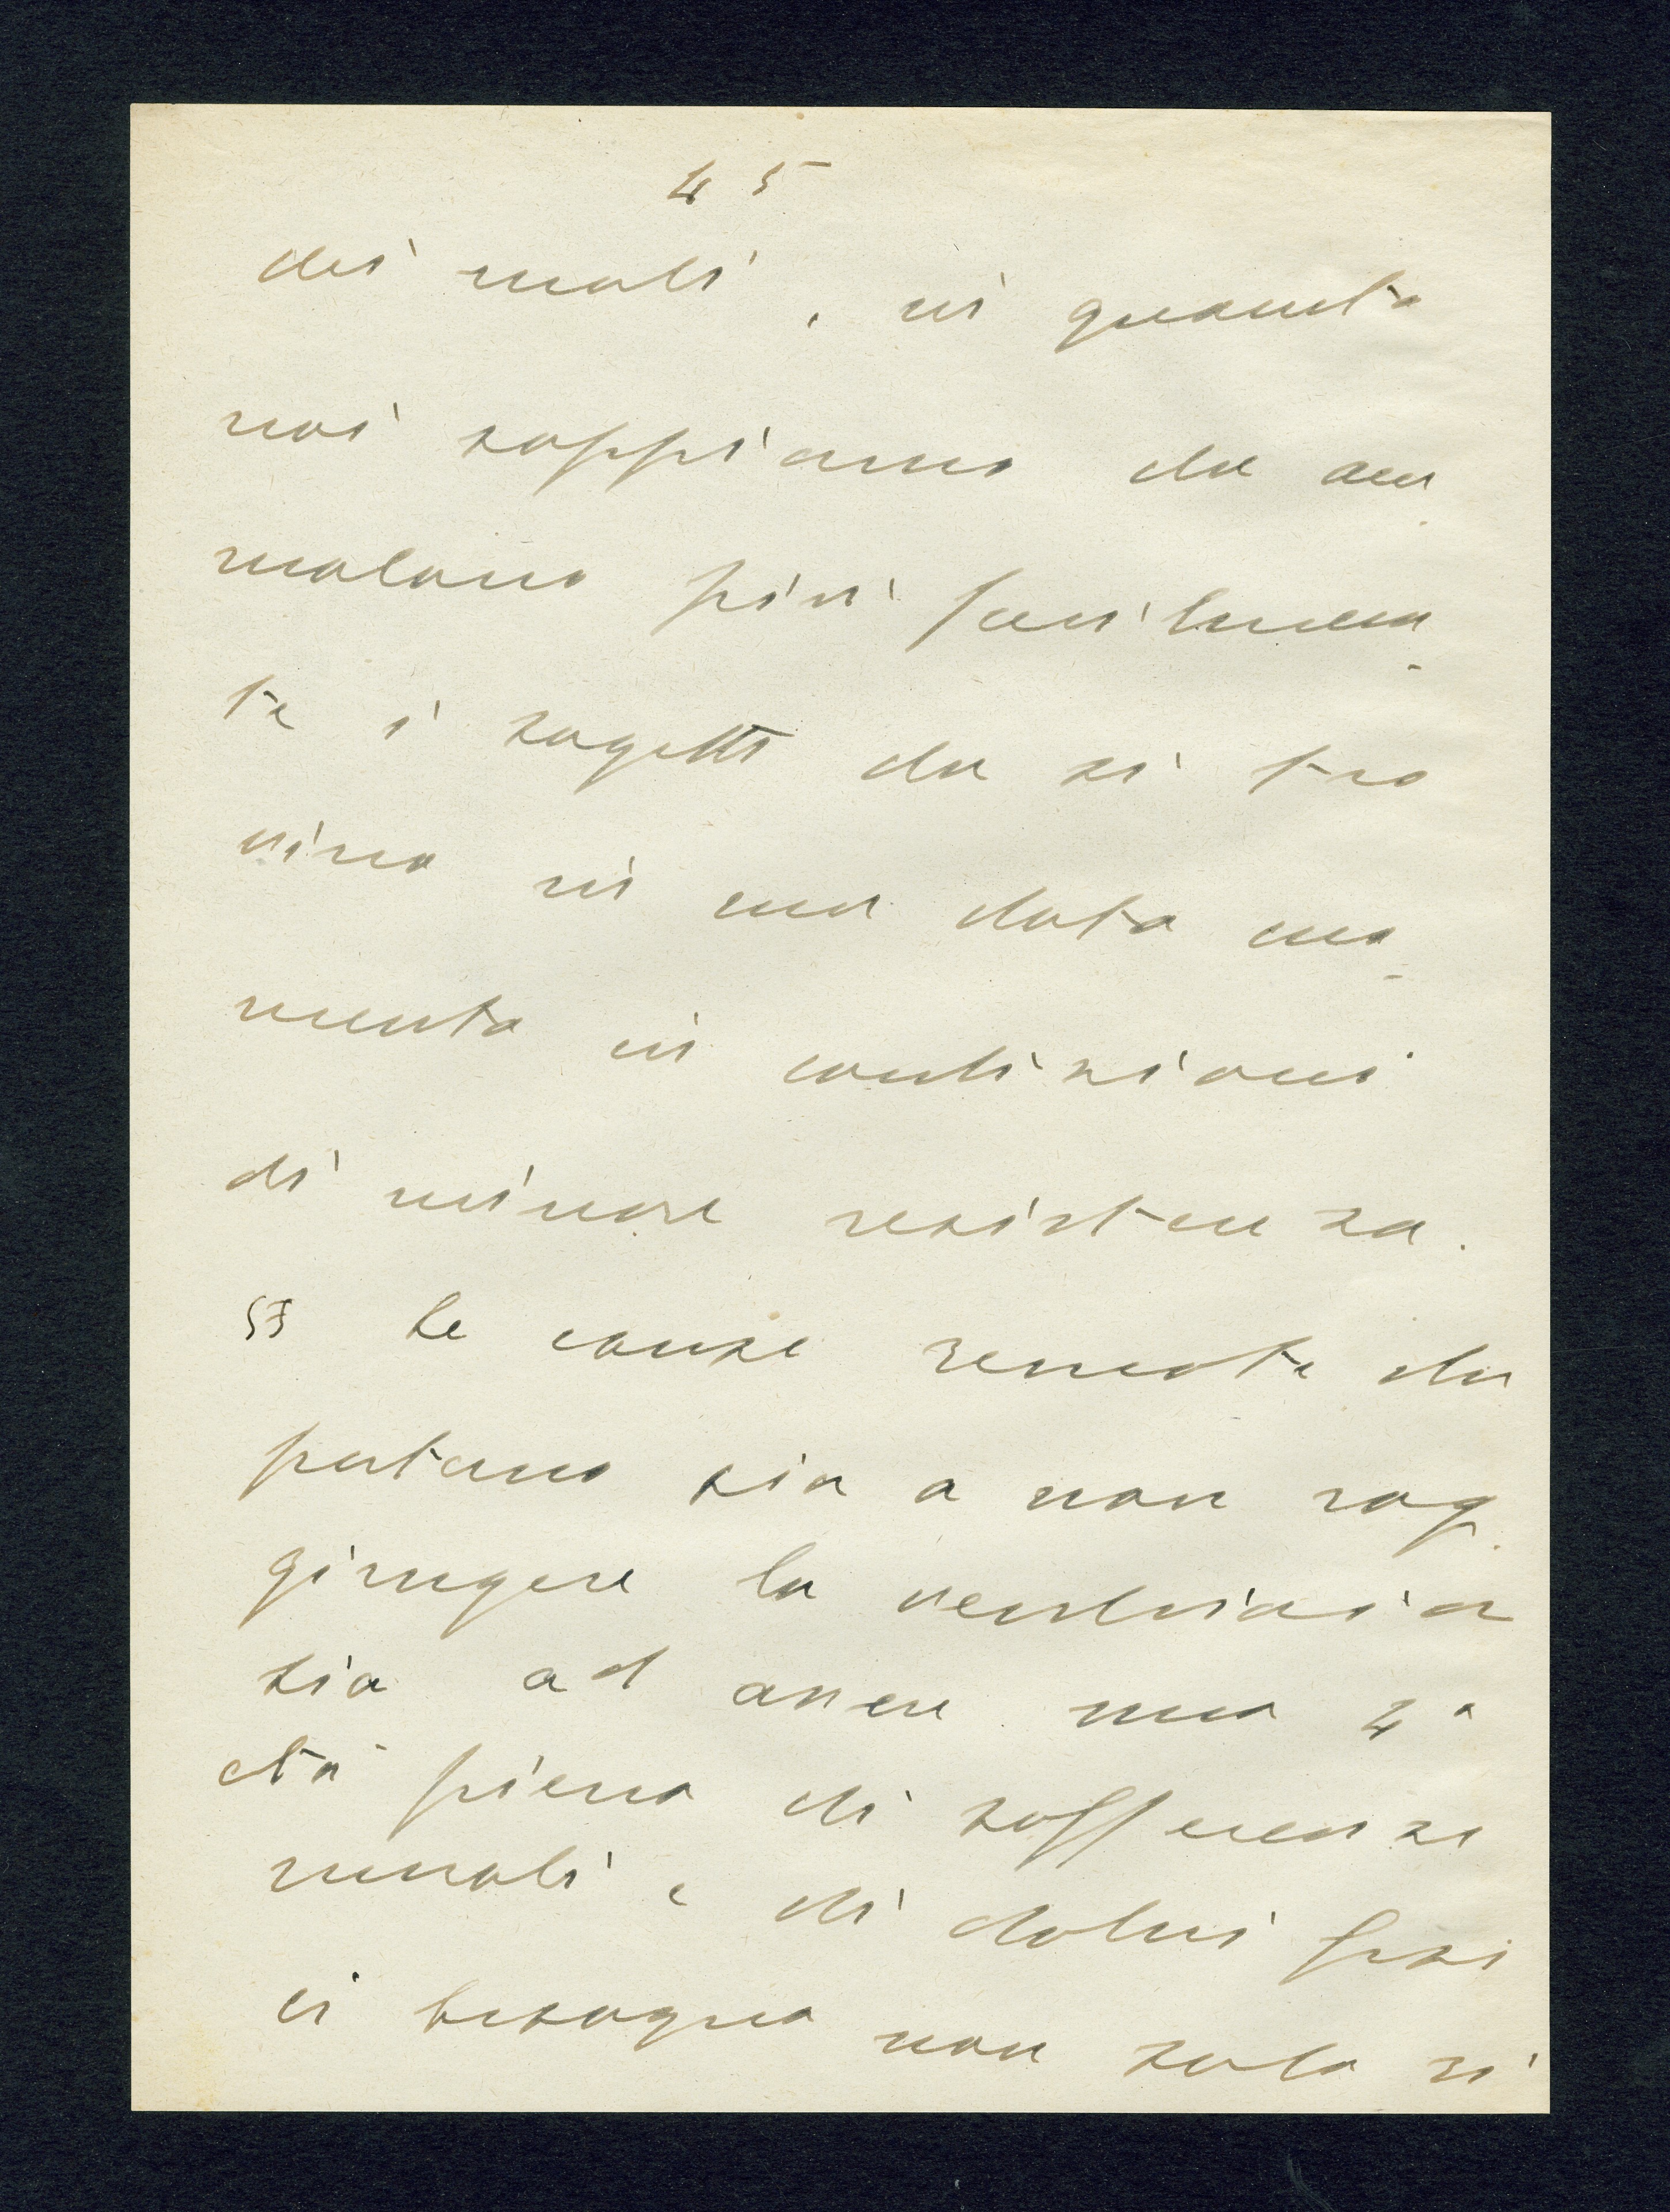 45
dei mali, in quanto
noi sappiamo che am-
malano più facilmen-
te i sogetti che si tro
vino in un dato mo-
mento in condizioni
di minore resistenza.
57 Le cause remote che
portano sia a non rag-
giungere la vecchiaia
sia ad avere una 4ª
età piena di sofferenze
murali e di dolori fisi
ci bisogna non solo ri